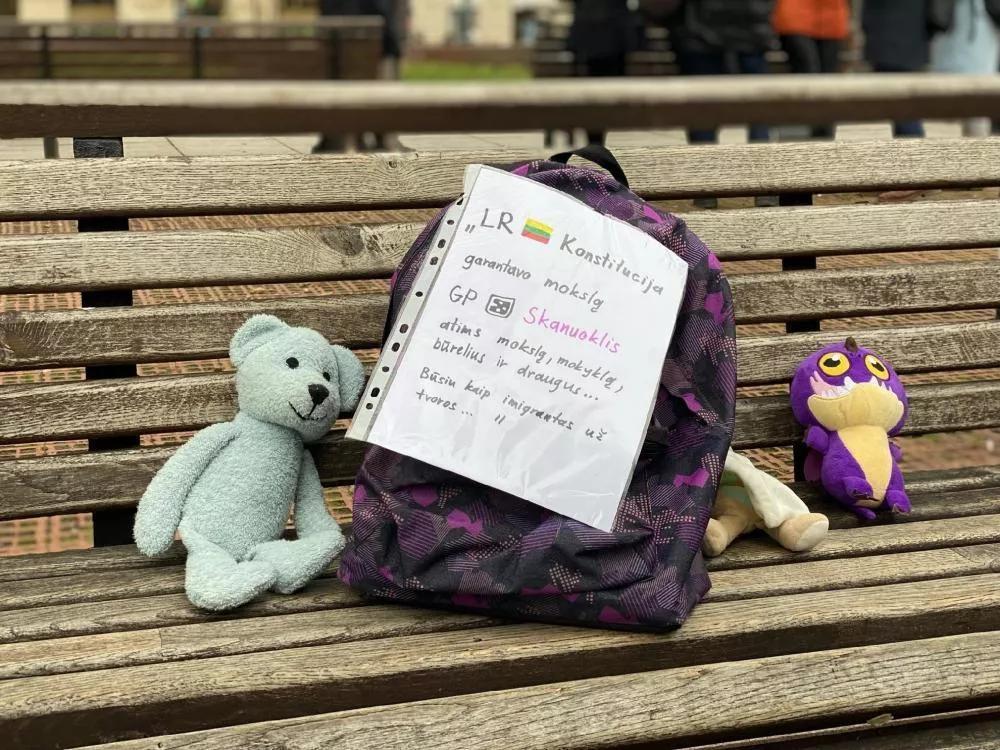 „LR Konstitucija
garantavo mokslą
GP Skanuoklis
atims mokslą, mokyklą,
būrelius ir draugus...
Būsiu kaip imigrantas už
tvoros... "